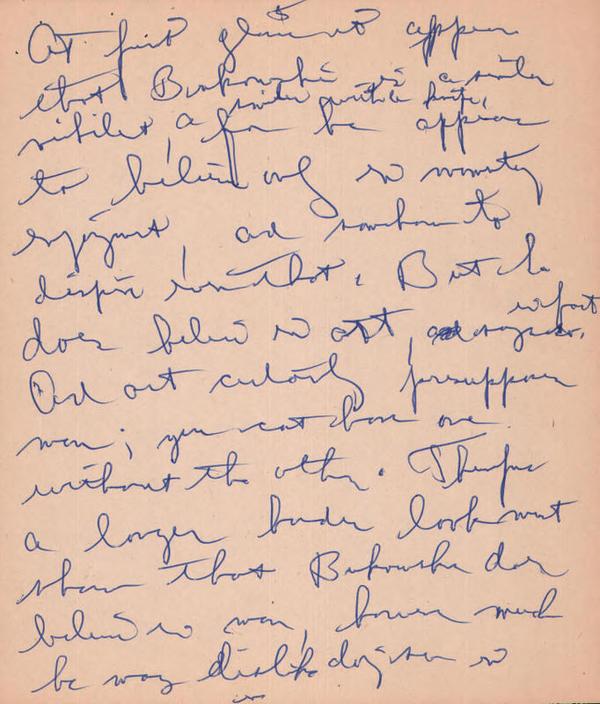 At first glance it appears
that Bukowski is a similar
a similar writer
nihilist, for he appears
to believe only in monetary
enjoyment, and somehow to
despise even that. But he
does believe in art, in fact
And art certainly presupposes
man; you cant have one
without the other. Therefore
a longer harder look must
show that Bukowski does
believe in man, however much
he may dislike in